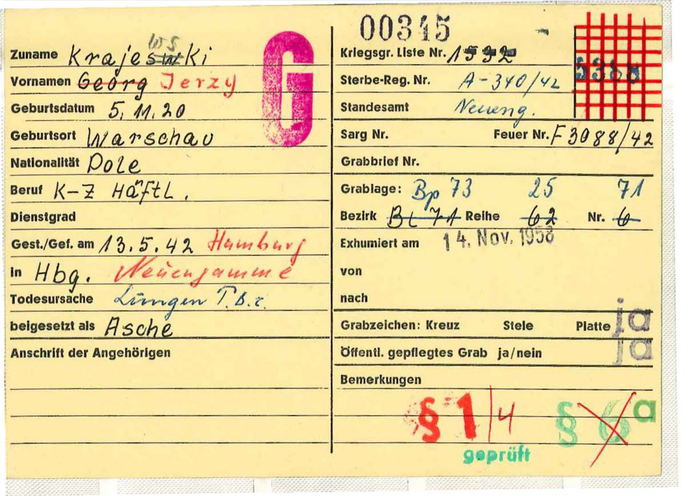 Zuname Krajewski
ws
Vornamen Georg Jerzy
Geburtsdatum 5.11.20
Geburtsort Warschau
Nationalität Pole
Beruf K-Z Häftl.
Dienstgrad
Gest./Gef. am 13.5.42 Hamburg
in Hbg. Neuengamme
Todesursache Lungen T.B.c.
beigesetzt als Asche
Anschrift der Angehörigen
G
00345
Kriegsgr. Liste Nr. 1532
Sterbe-Reg. Nr. A-340/42
Standesamt Neueng.
Sarg Nr. Feuer Nr. F 3088/42
Grabbrief Nr.
Grablage: Bp 73 25 71
Bezirk Bl 71 Reihe 62 Nr. 6
Exhumiert am 14. Nov. 1958
von
nach
Grabzeichen: Kreuz Stele Platte ja
Öffentl. gepflegtes Grab ja/nein ja
Bemerkungen
§ 1/4 § 6 a
geprüft